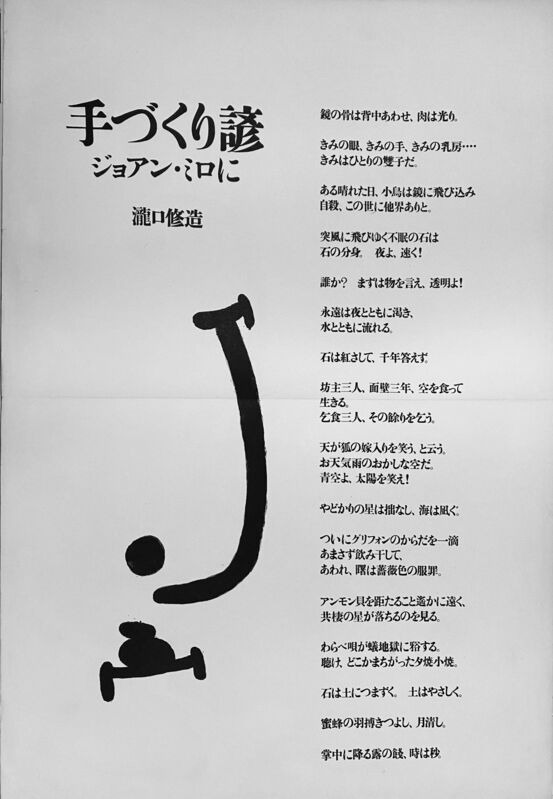 手づくり諺
ジョアン・ミロに
瀧口修造
鏡の骨は背中あわせ、肉は光り。
きみの眼、きみの手、きみの乳房‥‥
きみはひとりの雙子だ。
ある晴れた日、小鳥は鏡に飛び込み
自殺、この世に他界ありと。
突風に飛びゆく不眠の石は
石の分身。 夜よ、速く!
誰か? まずは物を言え、透明よ!
永遠は夜とともに渇き、
水とともに流れる。
石は紅さして、千年答えず。
坊主三人、面壁三年、空を食って
生きる。
乞食三人、その餘りを乞う。
天が狐の嫁入りを笑う、と云う。
お天気雨のおかしな空だ。
青空よ、太陽を笑え!
やどかりの星は拙なし、海は凪ぐ。
ついにグリフォンのからだを一滴
あまさず飲み干して、
あわれ、曙は薔薇色の服罪。
アンモン貝を距たること遙かに遠く、
共棲の星が落ちるのを見る。
わらべ唄が蟻地獄に谺する。
聴け、どこかまちがった夕焼小焼。
石は土につまずく。 土はやさしく。
蜜蜂の羽搏きつよし、月清し。
掌中に降る露の餞、時は秒。